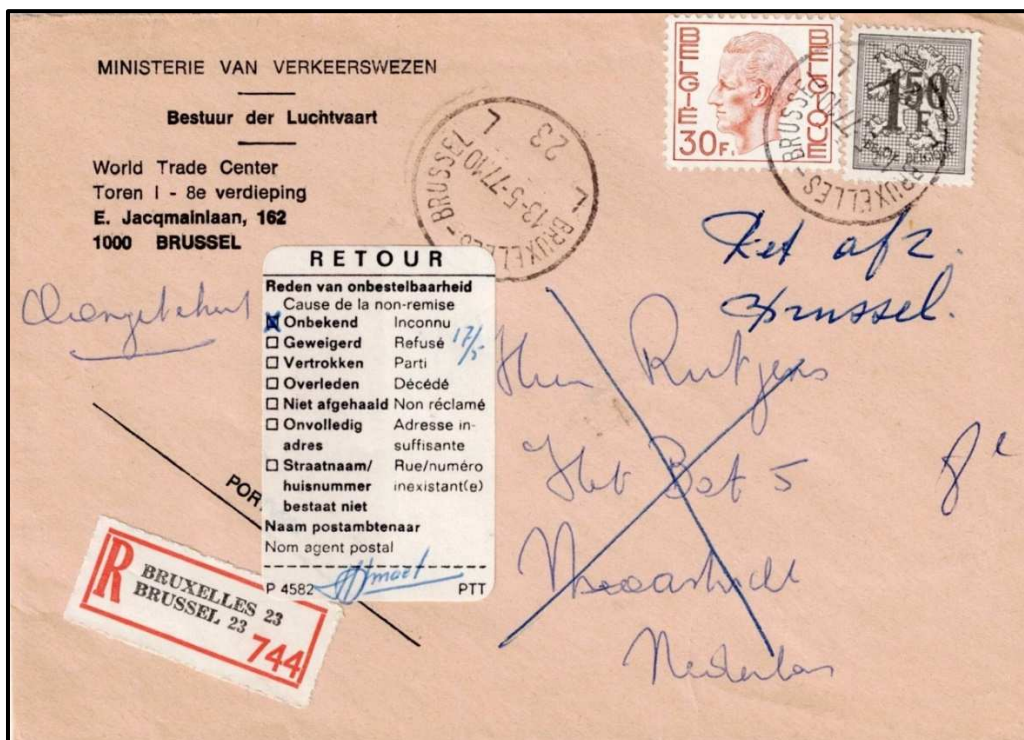 MINISTERIE VAN VERKEERSWEZEN
Bestuur der Luchtvaart
World Trade Center
Toren I - 8e verdieping
E. Jacqmainlaan, 162
1000 BRUSSEL
BRUXELLES - BRUSSEL
13-5-77.10
L 23 L
BELGIE BELGIQUE
30 F.
1 50 F
BRUXELLES - BRUSSEL
Ret afz.
Brussel.
Aangetekent
RETOUR
Reden van onbestelbaarheid
Cause de la non-remise
Onbekend Inconnu
Geweigerd Refusé 17/5
Vertrokken Parti
Overleden Décédé
Niet afgehaald Non réclamé
Onvolledig Adresse in-
adres suffisante
Straatnaam/ Rue/numéro
huisnummer inexistant(e)
bestaat niet
Naam postambtenaar
Nom agent postal
P 4582 PTT
POR
R BRUXELLES 23
BRUSSEL 23
744
Rutjens
Het Bat 5
Nederlan